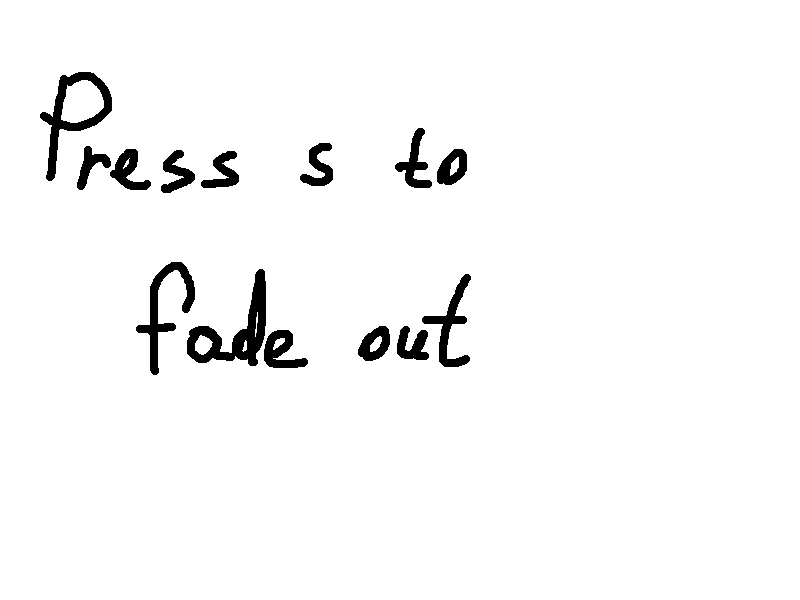 Press s to
fade out